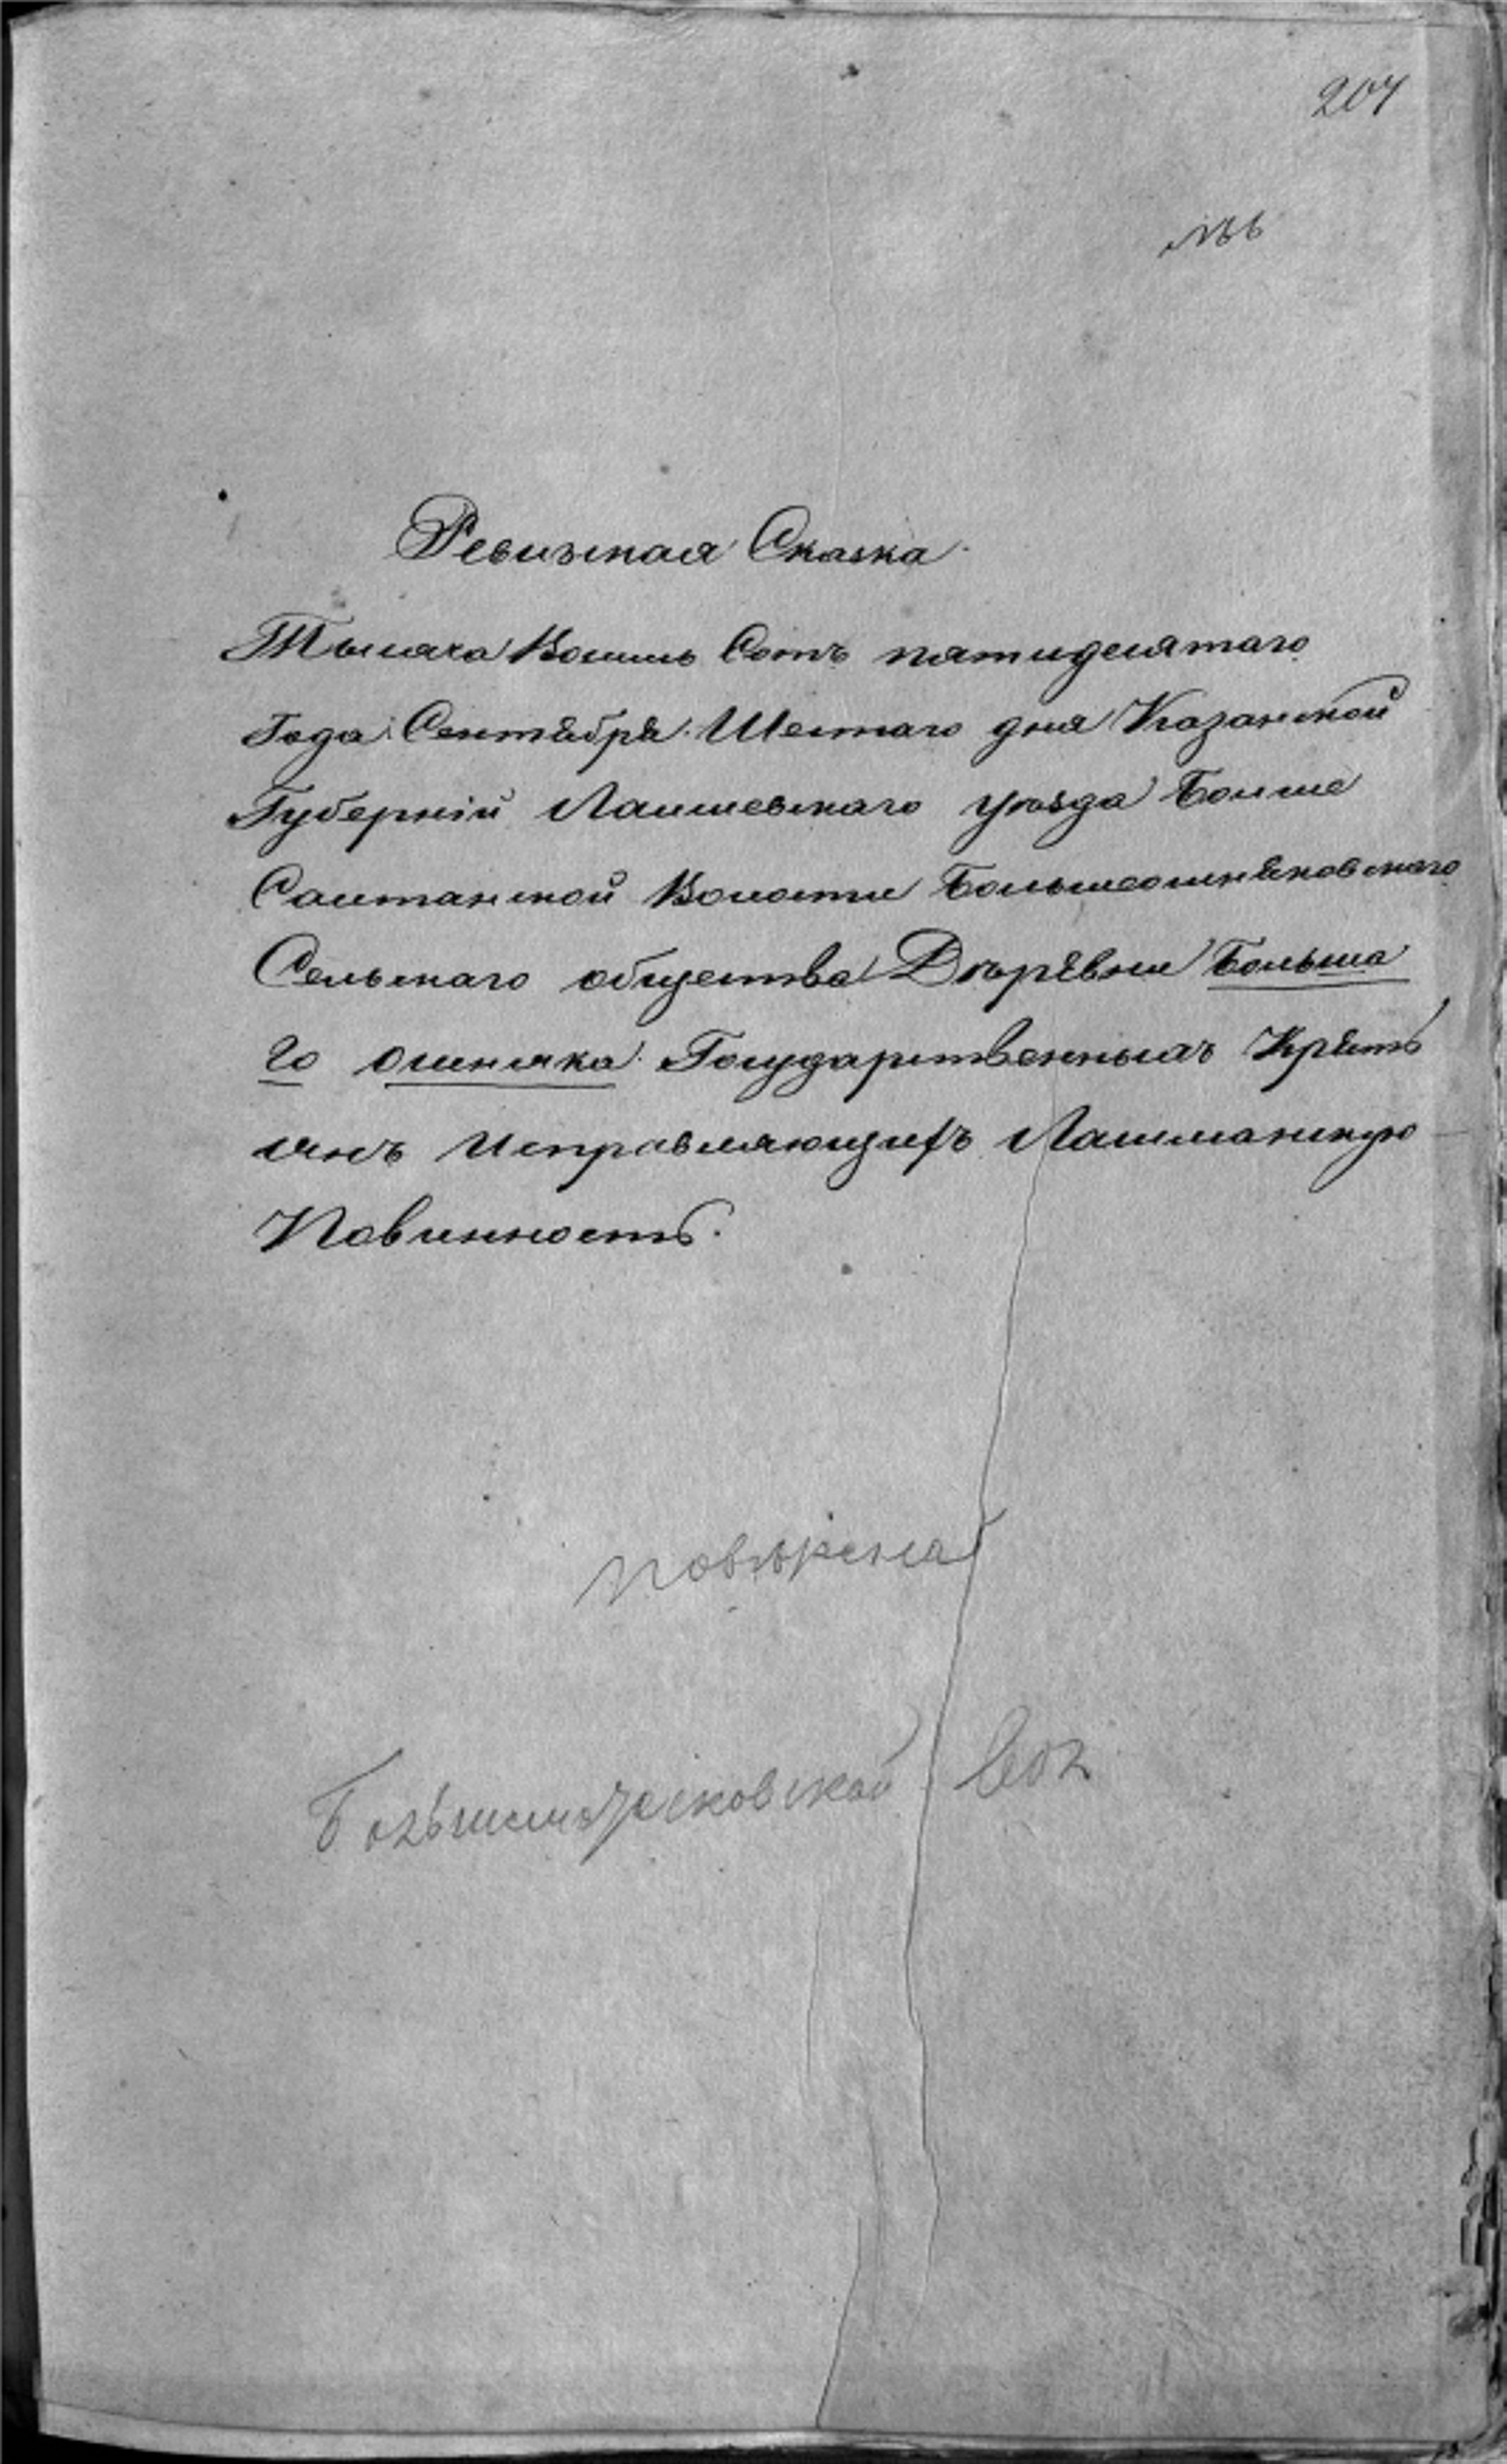 207
№ 6
Ревизская Сказка.
Тысяча Восемь Сотъ пятидесятаго
Года Сентября Шестаго дня Казанской
Губерніи Лаишевскаго уѣзда Больше
Салтанской Волости Большеошняковскаго
Сельскаго общества Дѣрѣвни Больша
го ошняка Государственныхъ Крѣсть
янъ Исправляющихъ Лашманскую
Повинность.
повѣрена
вол